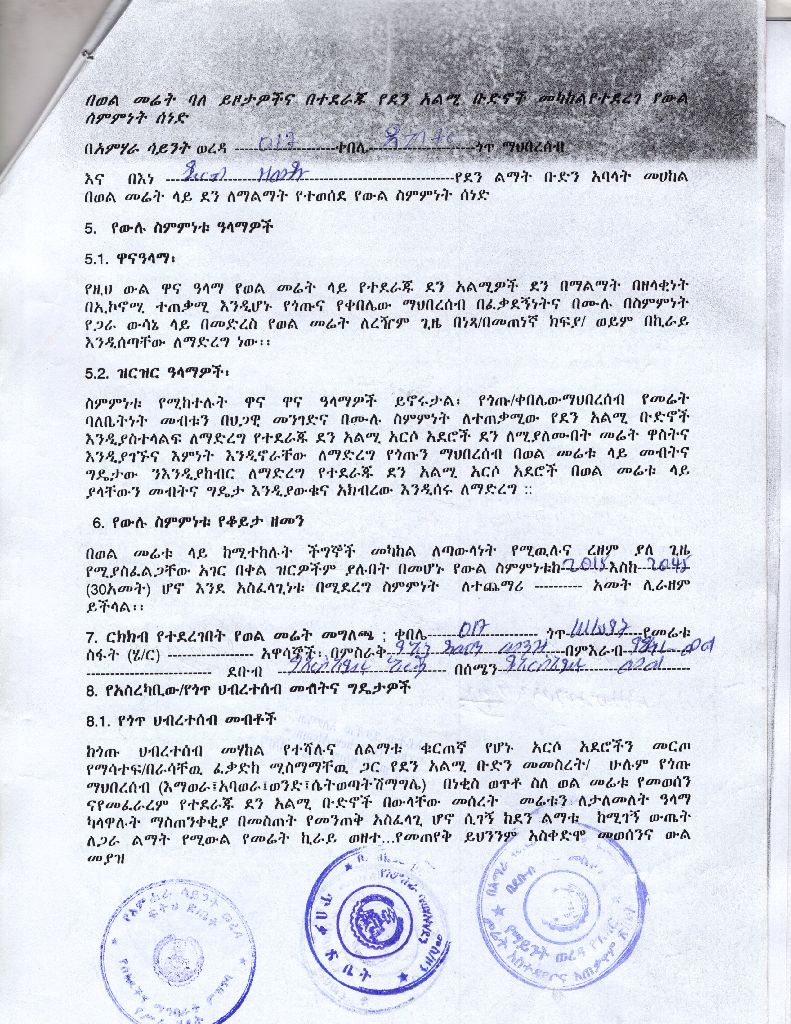 በወል መሬት ባለ ይዞታዎችና በተደራጁ የደን አልሚ ቡድኖች መካከልየተደረገ የውል
ስምምነት ሰነድ
በአምሃራ ሳይንት ወረዳ ---------------017-----------ቀበሌ---------------------ጎጥ ማህበረሰብ
እና በእነ ------------------------------------------------የደን ልማት ቡድን አባላት መሀከል
በወል መሬት ላይ ደን ለማልማት የተወሰደ የውል ስምምነት ሰነድ
5. የውሉ ስምምነቱ ዓላማዎች
5.1. ዋናዓላማ፡
የዚህ ውል ዋና ዓላማ የወል መሬት ላይ የተደራጁ ደን አልሚዎች ደን በማልማት በዘላቂነት
በኢኮኖሚ ተጠቃሚ እንዲሆኑ የጎጡና የቀበሌው ማህበረሰብ በፈቃደኝነትና በሙሉ በስምምነት
የጋራ ውሳኔ ላይ በመድረስ የወል መሬት ለረዥም ጊዜ በነጻ/በመጠነኛ ክፍያ/ ወይም በኪራይ
እንዲሰጣቸው ለማድረግ ነው፡፡
5.2. ዝርዝር ዓላማዎች፡
ስምምነቱ የሚከተሉት ዋና ዋና ዓላማዎች ይኖሩታል፡ የጎጡ/ቀበሌውማህበረሰብ የመሬት
ባለቤትነት መብቱን በህጋዊ መንገድና በሙሉ ስምምነት ለተጠቃሚው የደን አልሚ ቡድኖች
እንዲያስተላልፍ ለማድረግ የተደራጁ ደን አልሚ አርሶ አደሮች ደን ለሚያለሙበት መሬት ዋስትና
እንዲያገኙና እምነት እንዲኖራቸው ለማድረግ የጎጡን ማህበረሰብ በወል መሬቱ ላይ መብትና
ግዴታው ንእንዲያከብር ለማድረግ የተደራጁ ደን አልሚ አርሶ አደሮች በወል መሬቱ ላይ
ያላቸውን መብትና ግዴታ እንዲያውቁና አክብረው እንዲሰሩ ለማድረግ ::
6. የውሉ ስምምነቱ የቆይታ ዘመን
በወል መሬቱ ላይ ከሚተከሉት ችግኞች መካከል ለጣውላነት የሚዉሉና ረዘም ያለ ጊዜ
የሚያስፈልጋቸው አገር በቀል ዝርዎችም ያሉበት በመሆኑ የውል ስምምነቱከ-2015እስከ--2045
(30አመት) ሆኖ እንደ አስፈላጊነቱ በሚደረግ ስምምነት ለተጨማሪ ---------- አመት ሊራዘም
ይችላል፡፡
7. ርክክብ የተደረገበት የወል መሬት መግለጫ ; ቀበሌ--------017---------- ጎጥ---------------የመሬቱ
ስፋት (ሄ/ር) ----------------- አዋሳኞች፡ በምስራቅ--------------------------------በምእራብ
---------------------------- ደቡብ ---------------------------- በሰሜን
8. የአስረካቢው/የጎጥ ህብረተሰብ መብትና ግዴታዎች
8.1. የጎጥ ህብረተሰብ መብቶች
ከጎጡ ህብረተሰብ መሃከል የተሻሉና ለልማቱ ቁርጠኛ የሆኑ አርሶ አደሮችን መርጦ
የማሳተፍ/በራሳቸዉ ፈቃድከ ሚስማማቸዉ ጋር የደን አልሚ ቡድን መመስረት/ ሁሉም የጎጡ
ማህበረሰብ (እማወራ፣አባወራ፣ወንድ፣ሴትወጣትሽማግሌ) በነቂስ ወጥቶ ስለ ወል መሬቱ የመወሰን
ናየመፈራረም የተደራጁ ደን አልሚ ቡድኖች በውላቸው መሰረት መሬቱን ለታለመለት ዓላማ
ካላዋሉት ማስጠንቀቂያ በመስጠት የመንጠቅ አስፈላጊ ሆኖ ሲገኝ ከደን ልማቱ ከሚገኝ ውጤት
ለጋራ ልማት የሚውል የመሬት ኪራይ ወዘተ...የመጠየቅ ይህንንም አስቀድሞ መወሰንና ውል
መያዝ